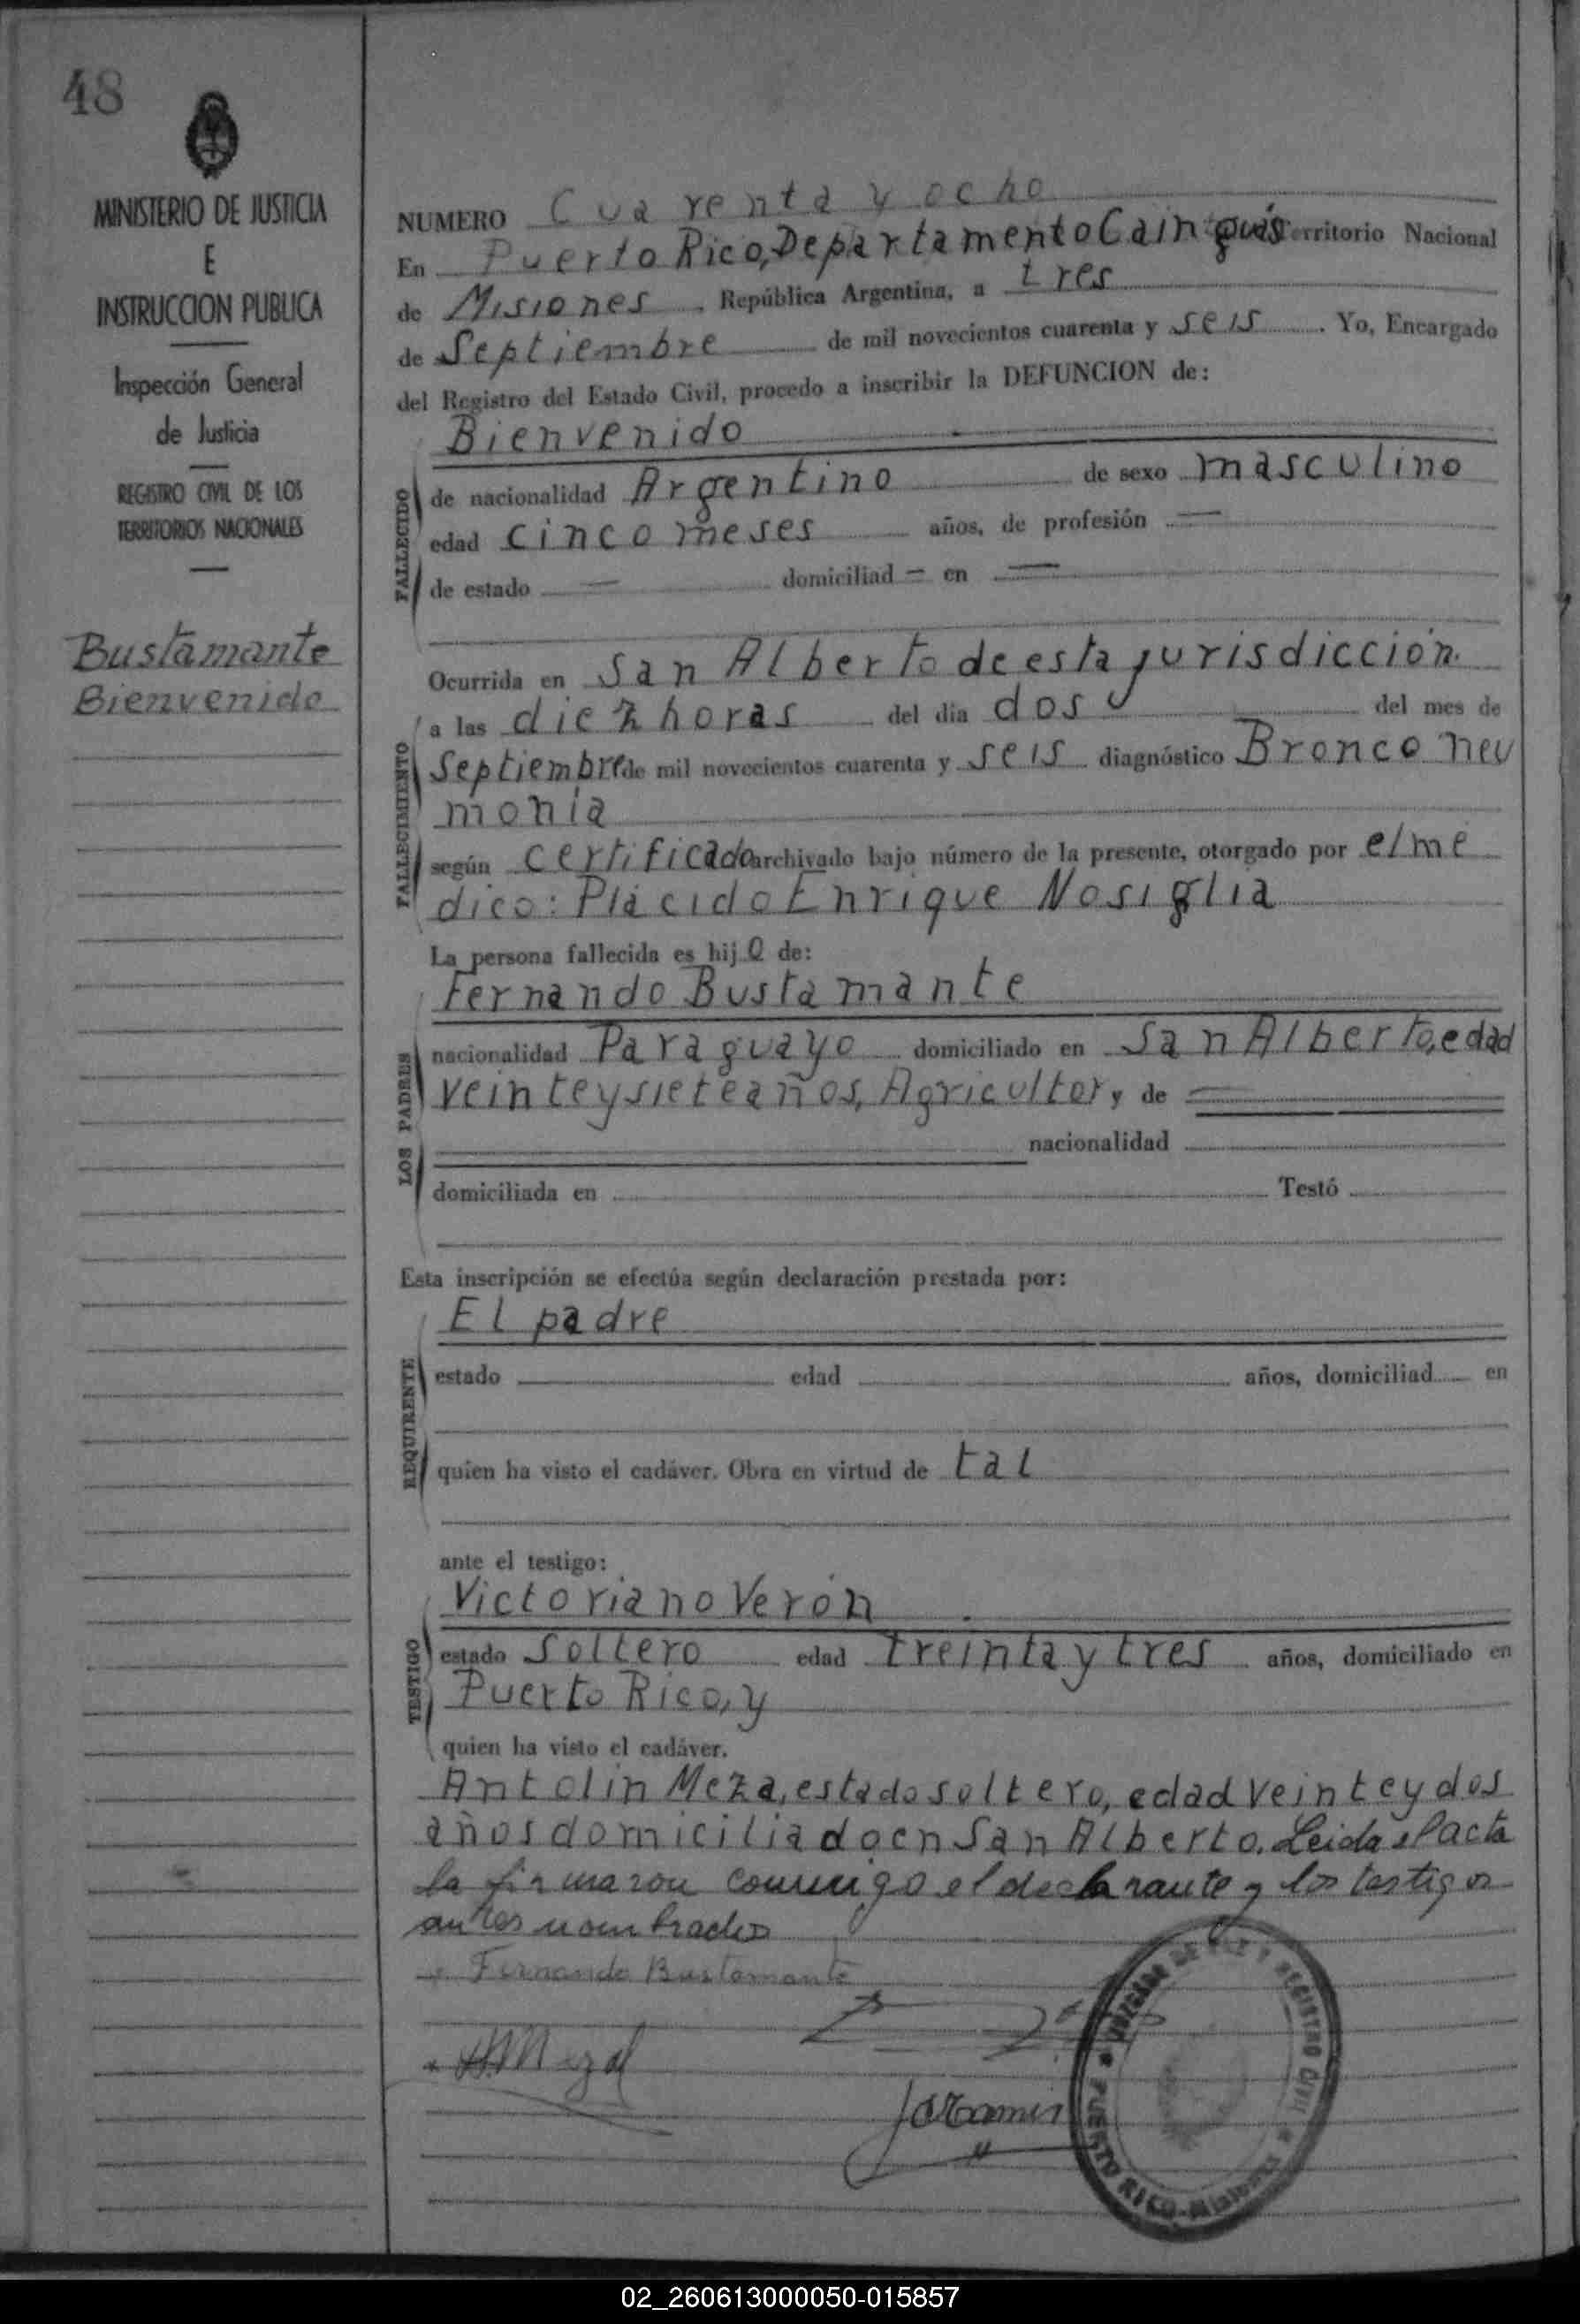 48
MINISTERIO DE JUSTICIA
E
INSTRUCCION PUBLICA
Inspección General
de Justicia
REGISTRO CIVIL DE LOS
TERRITORIOS NACIONALES
Bustamante
Bienvenido
NUMERO Cuarenta y ocho
En Puerto Rico, Departamento Cainguás Territorio Nacional
de Misiones. República Argentina, a tres
de Septiembre de mil novecientos cuarenta y seis. Yo, Encargado
del Registro del Estado Civil, procedo a inscribir la DEFUNCION de:
Bienvenido
FALLECIDO
de nacionalidad Argentino de sexo masculino
edad cinco meses años, de profesión —
de estado — domiciliad — en —
FALLECIMIENTO
Ocurrida en San Alberto de esta jurisdicción.
a las diez horas del día dos del mes de
Septiembre de mil novecientos cuarenta y seis diagnóstico Bronco neu
monía
según certificado archivado bajo número de la presente, otorgado por el mé
dico: Plácido Enrique Nosiglia
La persona fallecida es hijo de:
LOS PADRES
Fernando Bustamante
nacionalidad Paraguayo domiciliado en San Alberto, edad
veinte y siete años, Agricultor y de
nacionalidad
domiciliada en Testó
Esta inscripción se efectúa según declaración prestada por:
REQUIRENTE
El padre
estado edad años, domiciliad en
quien ha visto el cadáver. Obra en virtud de tal
ante el testigo:
TESTIGO
Victoriano Verón
estado soltero edad treinta y tres años, domiciliado en
Puerto Rico, y
quien ha visto el cadáver.
Antolin Meza, estado soltero, edad veinte y dos
años domiciliado en San Alberto. Leida el acta
la firmaron conmigo el declarante y los testigos
antes nombrados
Fernando Bustamante
JUZGADO DE PAZ Y REGISTRO CIVIL
PUERTO RICO - Misiones
02_260613000050-015857